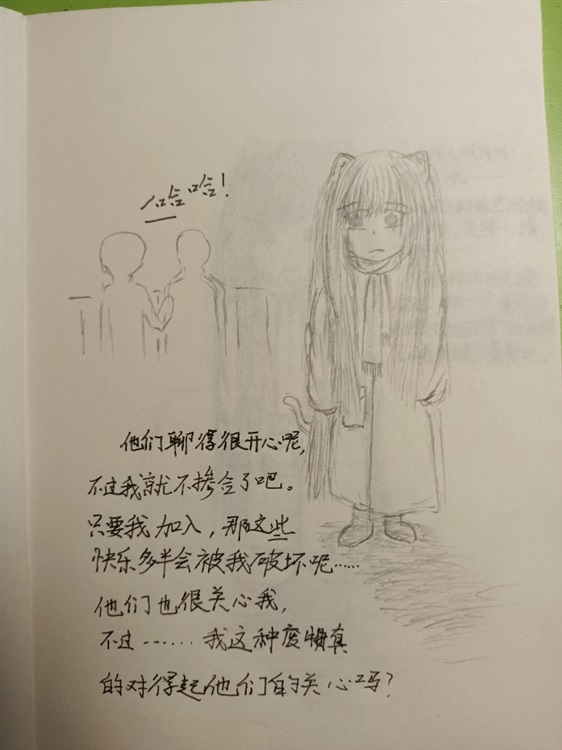 哈哈!
他们聊得很开心呢,
不过我就不掺合了吧。
只要我加入,那这些
快乐多半会被我破坏呢……
他们也很关心我,
不过………我这种废物真
的对得起他们的关心吗?